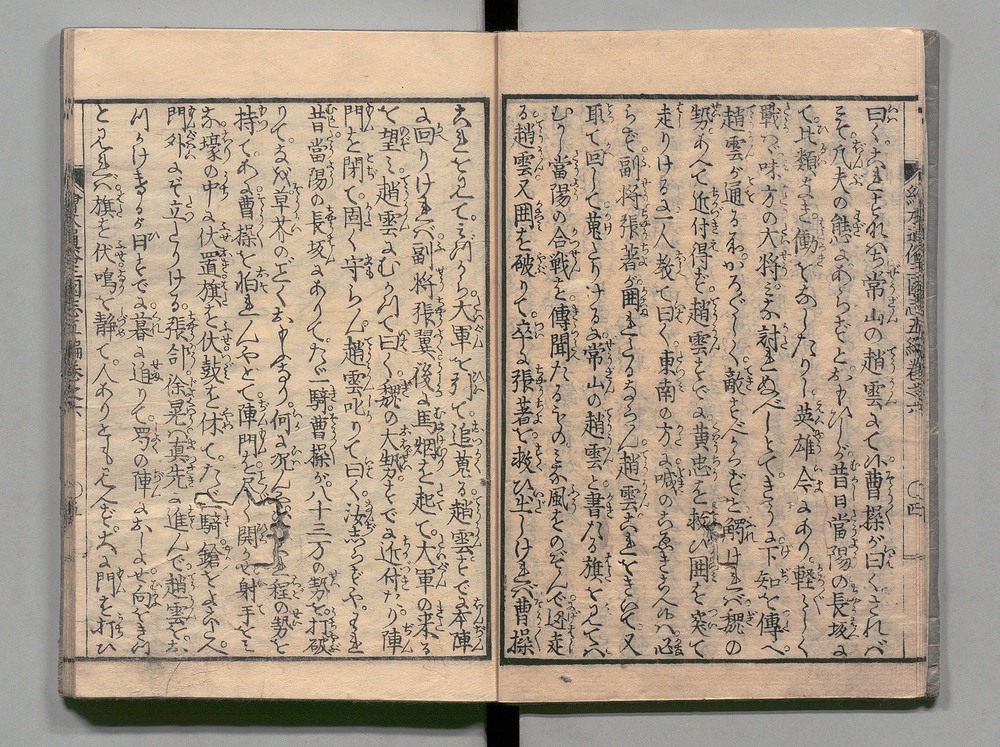 曰くこれすなはち常山の趙雲にて候曹操が曰くされバ
こそ凡夫の態にあらずとおもひしが昔日當陽の長坂に
て比類なき働をなしたりし英雄今にあり軽々しく
戦ハ味方の大将ミな討れぬべしとてきうに下知を傳へ
趙雲が通るわかろ〲しく敵すべからずと觸けれバ魏の
勢あへて近付得ず趙雲すでに黄忠を救ひ囲を突て
走りける時一人教て曰く東南の方に喊のこゑきこへ候ハ必
らず副将張著が囲れたるならん趙雲これをきいて又
取て回して蒐たりけるに常山の趙雲と書たる旗を見て
むかし當陽の合戦を傳聞たるものミな風をのぞんで迯走
る趙雲又囲を破りて卒に張著を救ひ出しけれバ曹操
これを見てミづから大軍を引て追蒐る趙雲すでに本陣
に回りけれバ副将張翼後に馬烟を起て大軍の来る
を望ミ趙雲にむかつて曰く魏の大勢すでに近付たり陣
門を閉て固く守らん趙雲叱りて曰く汝しらずやわれ
昔當陽の長坂にありてたゞ一騎曹操が八十三万の勢を打破
りてなを草芥のごとくおもへり何に況んや
持てあに曹操を怕れんやとて陣門を尽く開かせ射手をミ
な壕の中に伏置旗を伏鼓を休てたゞ一騎鎗をよこたへ
門外にぞ立たりける張郃徐晃真先に進んで趙雲を
つけ来るが日すでに暮に迫りて蜀の陣におしよせ向をきつ
と見れバ旗を伏鳴を静て人ありとも見へず大に門を打ひ
繪本通俗三國志五編巻之六
〇四
繪本通俗三國志五編巻之六
〇五